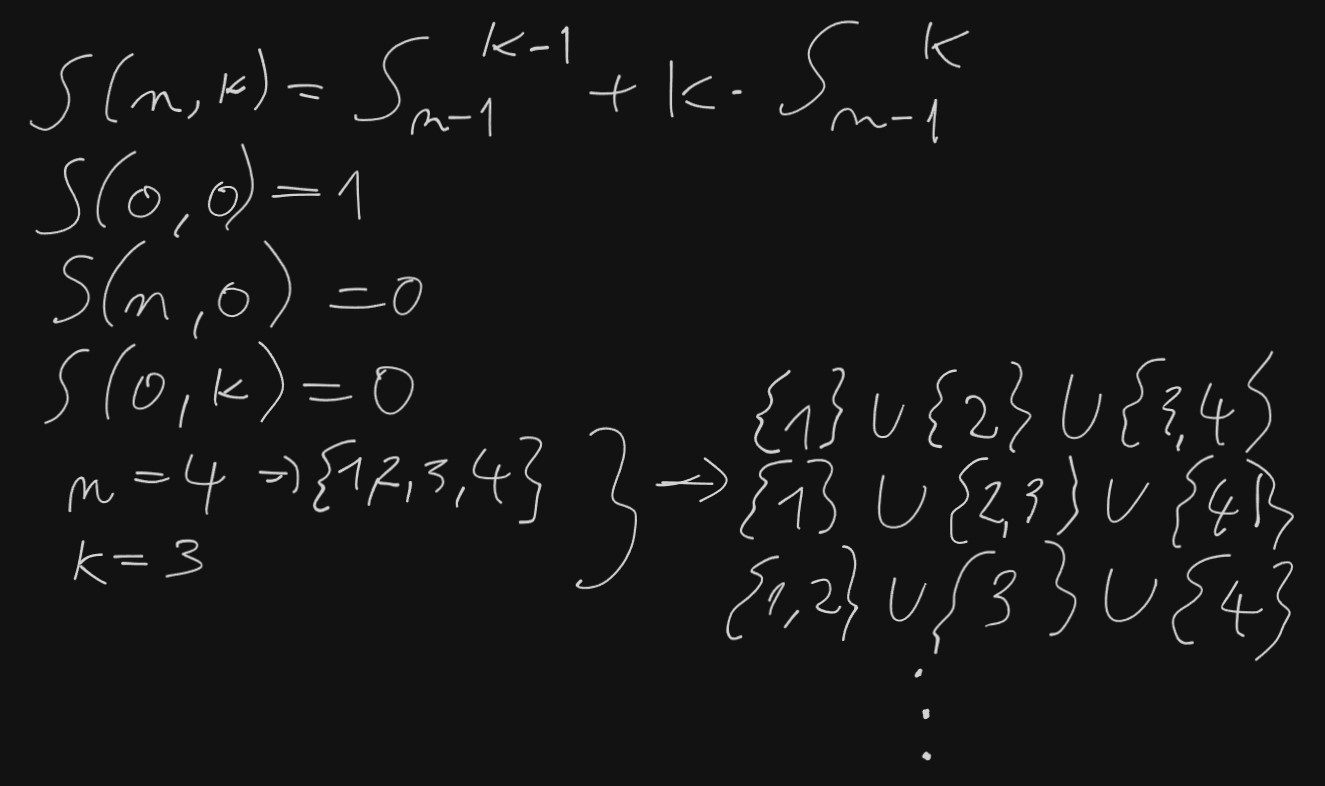 S(n,k) = S_{n-1}^{k-1} + k · S_{n-1}^{k}
S(0,0) = 1
S(n,0) = 0
S(0,k) = 0
n = 4 ⇒ {1,2,3,4} } → {1} ∪ {2} ∪ {3,4}
k = 3
{1} ∪ {2,3} ∪ {4}
{1,2} ∪ {3} ∪ {4}
⋮